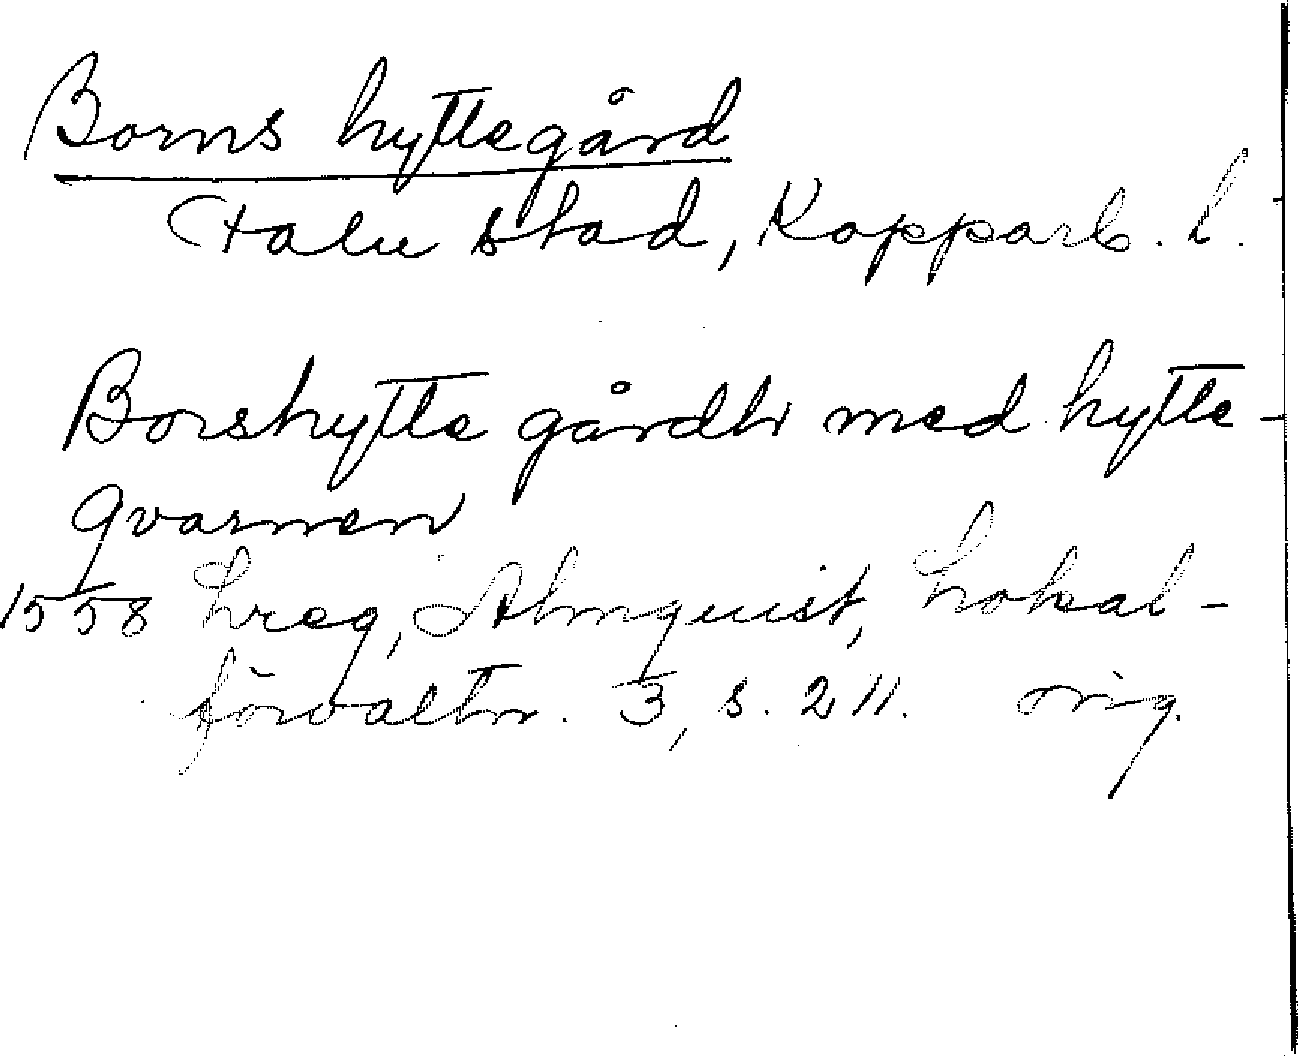 Borns hyttegård
Falu stad, Kopparb. l.
Borshytte gårdhr med hytte-
qvarnen
1558 Lreg, Almquist, Lokal-
förvaltn. 3, s. 211. orig.